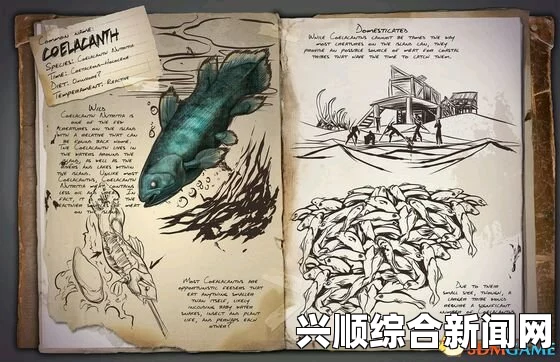 Common name:
COELACANTH
Species: Coelacanth Nutritia
Time: Cretaceous-Holocene
Diet: Omnivore?
Temperament: Reactive
Wild
Coelacanth Nutritia
is one of the few
creatures on the island
with a relative that can
be found back home.
The Coelacanth lives in
the waters around the
island, as well as the
rivers and lakes within
the island. Unlike most
Coelacanths, Coelacanth
Nutritia meat contains
less oil and In
fact, it
meat
on the
Most Coelacanths are
opportunistic feeders that
eat anything smaller
than itself, likely
including baby water
snakes, insect and plant
life, and perhaps each
other?
Domesticated
While Coelacanths cannot be tamed the way
most creatures on the island can, they
provide an possible source of meat for coastal
tribes that have the time to catch them.
Due to their
small size, though, a
larger tribe would
require a significant
number of Coelacanths
兴顺综合新闻网
3DMGAME